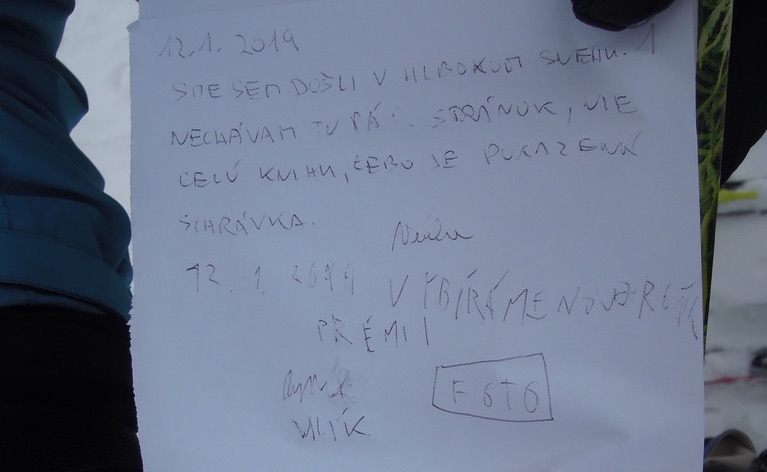 12.1. 2019
SME SEM DOŠLI V HLBOKOM SNEHU. 1
NECHÁVAM TU PÁR STRÁNOK, NIE
CELÚ KNIHU, ČEBO JE POKAZENÁ
SCHRÁVKA.
12. 1. 2019 VYBÍRÁME NOVOROČ
PRÉMII
VLÍK
F 6T6